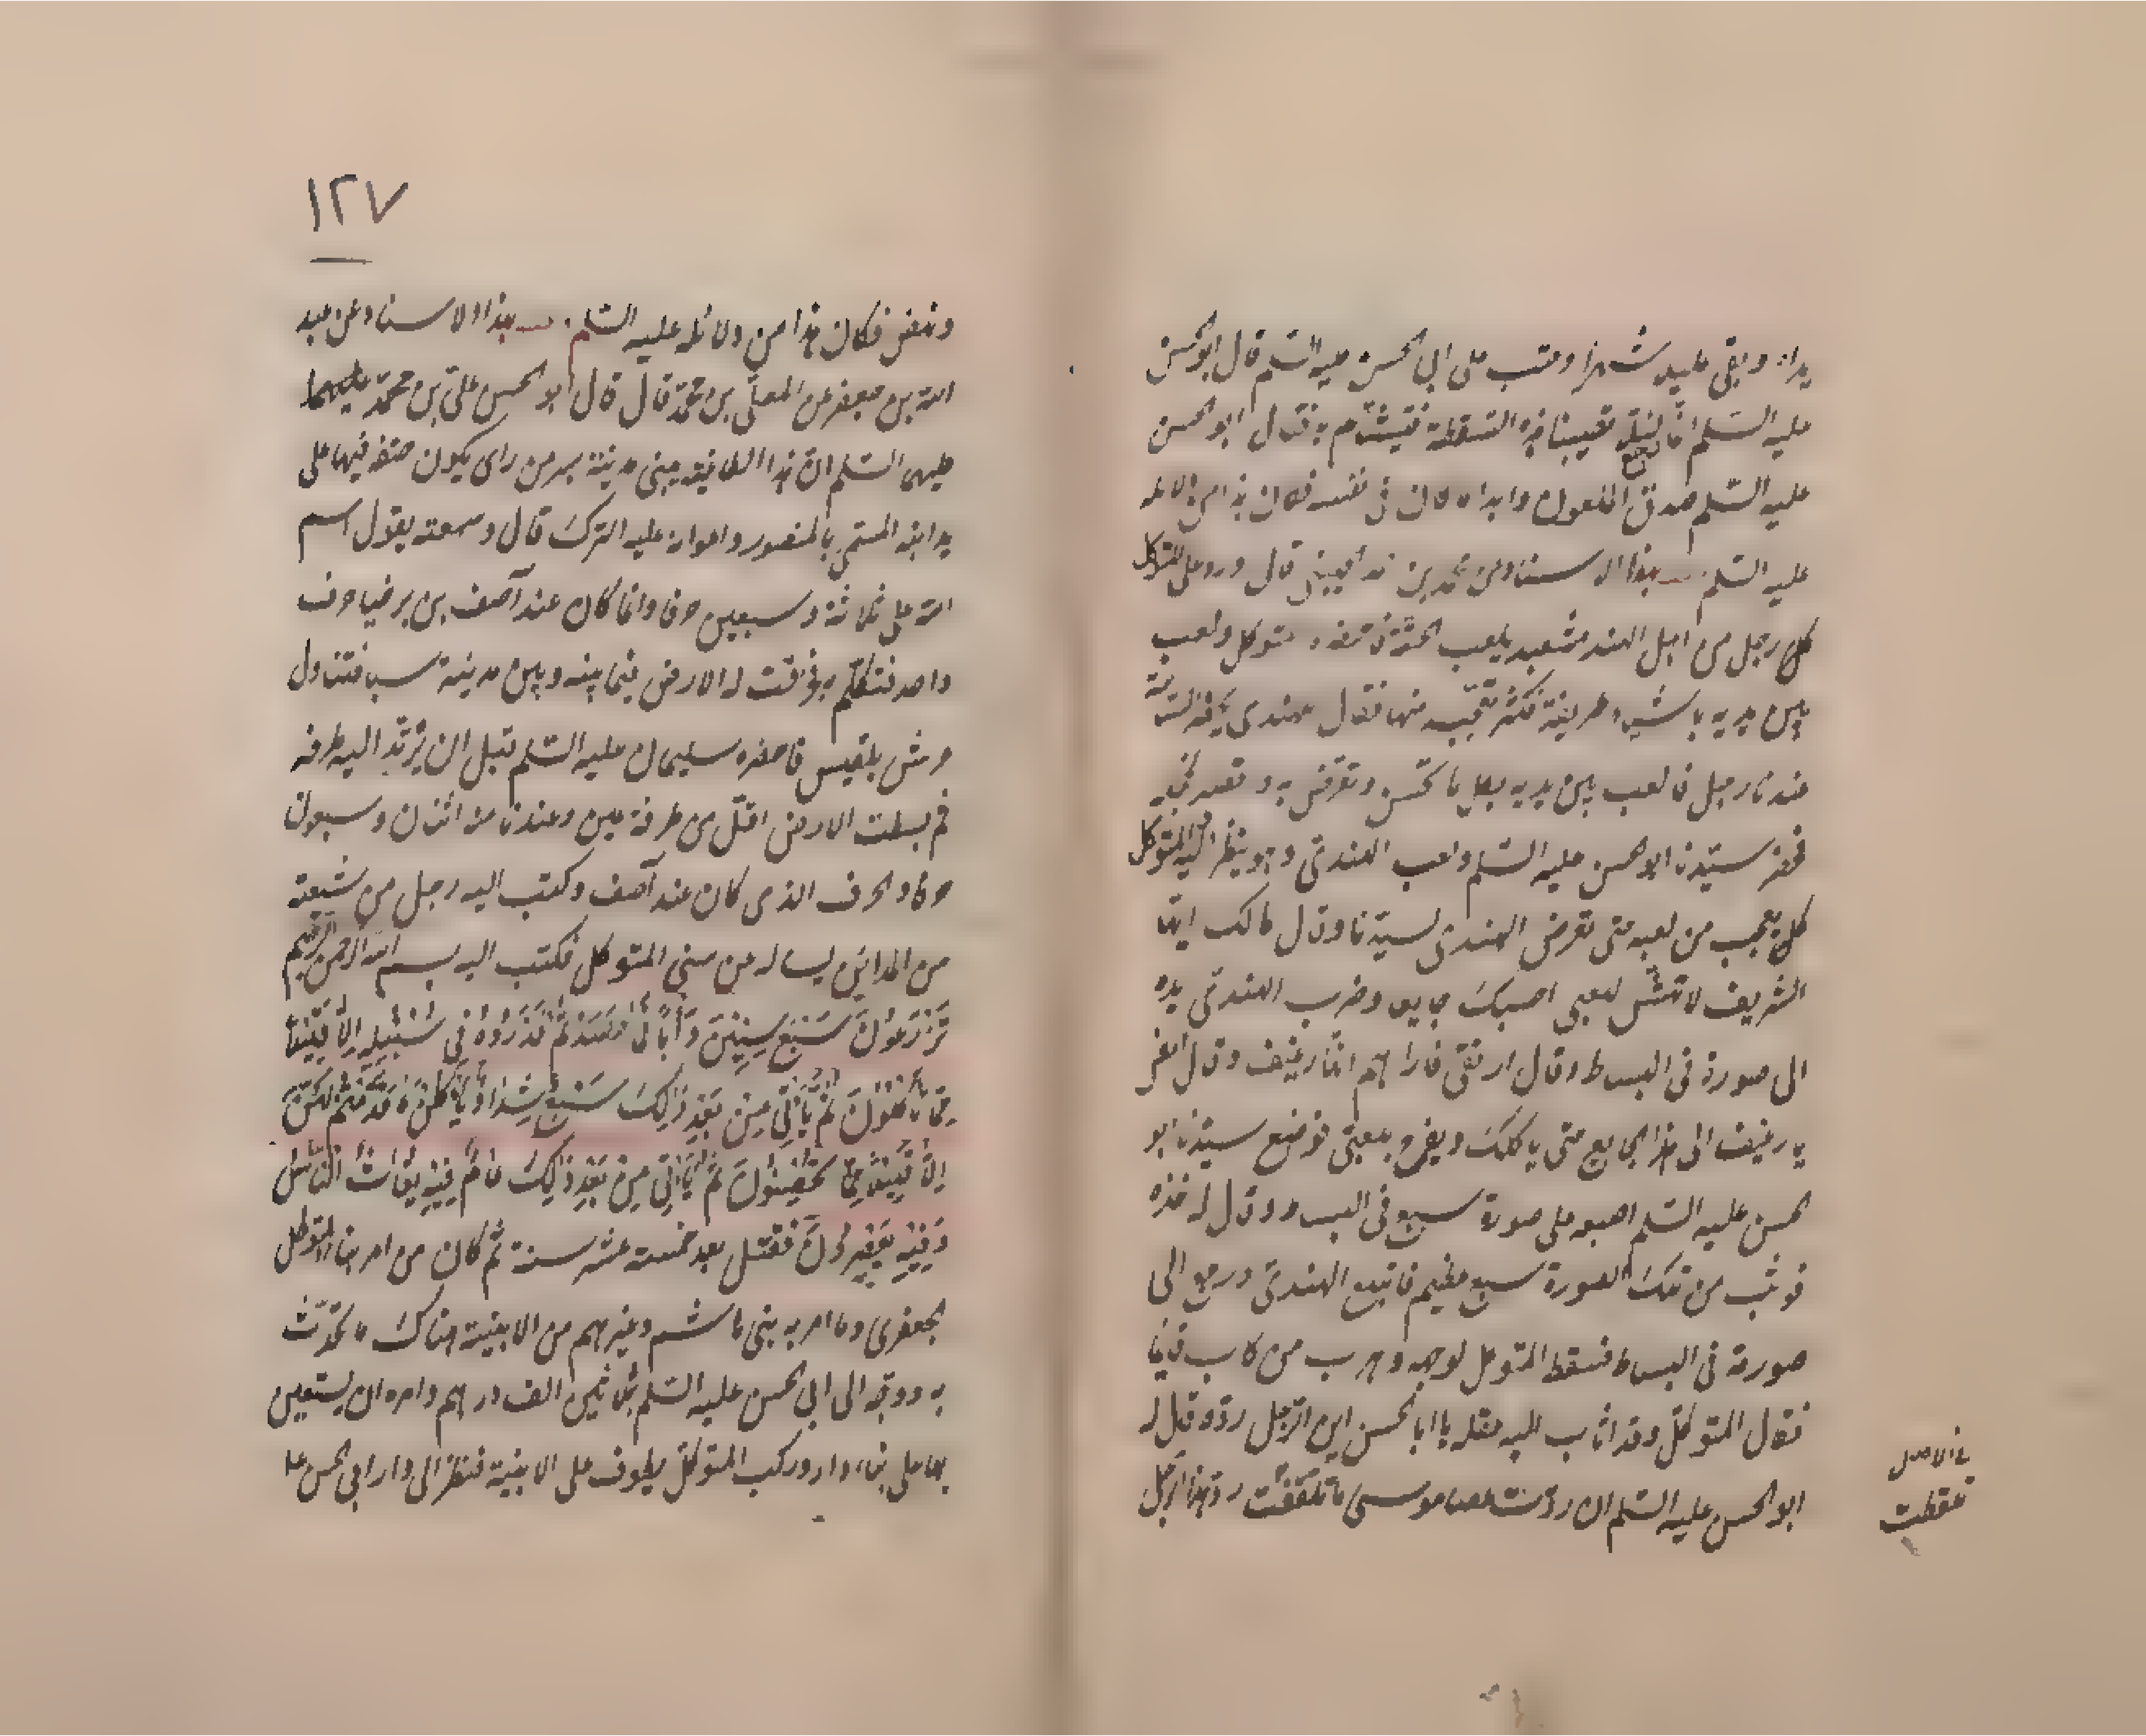 يداه وبقى عليه شهرا وعتب على ابى الحسن عليه السلم قال ابو الحسن
عليه السلم تصيبنا هذه السقطة فيتشأم به فقال ابو الحسن
عليه السلم صدق الملعون وابداه كان فى نفسه فكان هذا من دلائله
عليه السلم بهذا الاسناد عن محمد بن قال ورد على المتوكل
رجل من اهل الهند مشعبد يلعب الحقة فاحضره المتوكل ولعب
بين يديه باشياء طريفة فكثر تعجبه منها فقال للهندى يحضر الساعة
عندنا رجل فالعب بين يديه بكل ما تحسن وتعرض به وقصد
فحضر سيدنا ابو الحسن عليه السلم ولعب الهندى وهو ينظر اليه والمتوكل
يعجب من لعبه حتى تعرض الهندى لسيدنا وقال مالك ايها
الشريف لا تهش للعبى احسبك جايعا وضرب الهندى يده
الى صورة فى البساط وقال ارتفى فاراهم انها رغيف وقال امض
يا رغيف الى هذا الجايع حتى ياكلك ويفرح بلعبى فوضع سيدنا ابو
الحسن عليه السلم اصبعه على صورة سبع فى البساط وقال له خذه
فوثب من تلك الصورة سبع عظيم فابتلع الهندى ورجع الى
صورته فى البساط فسقط المتوكل لوجهه وهرب من كان قايما
فقال المتوكل وقد اثاب اليه عقله يا ابا الحسن اين الرجل رده قال له
ابو الحسن عليه السلم ان ردت عصا موسى ما تلقفت رد هذا الرجل
فى الاصل
تلقطت
١٢٧
ونهض فكان هذا من دلائله عليه السلم بهذا الاسناد عن عبد
الله بن جعفر عن المعلى بن محمد قال قال ابو الحسن على بن محمد عليهما
عليهما السلم ان هذا الطاغية يبنى مدينة بسر من راى يكون حتفه فيها على
يد ابنه المسمى بالمنتصر واعوانه عليه الترك قال وسمعته يقول اسم
الله على ثلاثة وسبعين حرفا وانما كان عند آصف بن برخيا حرف
واحد فتكلم به فخرقت له الارض فيما بينه وبين مدينة سبا فتناول
عرش بلقيس فاحضره سليمان عليه السلم قبل ان يرتد اليه طرفه
ثم بسطت الارض اقل من طرفة عين وعندنا منه اثنان وسبعون
حرفا والحرف الذى كان عند آصف وكتب اليه رجل من شيعته
من المدائن يساله عن سنى المتوكل فكتب اليه بسم الله الرحمن الرحيم
تَزْرَعُونَ سَبْعَ سِنِينَ دَأَبًا فَمَا حَصَدْتُمْ فَذَرُوهُ فِي سُنْبُلِهِ اِلَّا قَلِيلًا
مِمَّا تَأْكُلُونَ ثُمَّ يَأْتِي مِنْ بَعْدِ ذَلِكَ سَبْعٌ شِدَادٌ يَأْكُلْنَ مَا قَدَّمْتُمْ لَهُنَّ
اِلَّا قَلِيلًا مِمَّا تُحْصِنُونَ ثُمَّ يَأْتِي مِنْ بَعْدِ ذَلِكَ عَامٌ فِيهِ يُغَاثُ النَّاسُ
وَفِيهِ يَعْصِرُونَ فقتل بعد خمسة عشر سنة ثم كان من امر بناء المتوكل
الجعفرى وما امر به بنى هاشم وغيرهم من الابنية هناك ما تحدث
به ووجه الى ابى الحسن عليه السلم بثلاثين الف درهم وامره ان يستعين
بها على بناء دار وركب المتوكل يطوف على الابنية فنظر الى دار ابى الحسن عليه